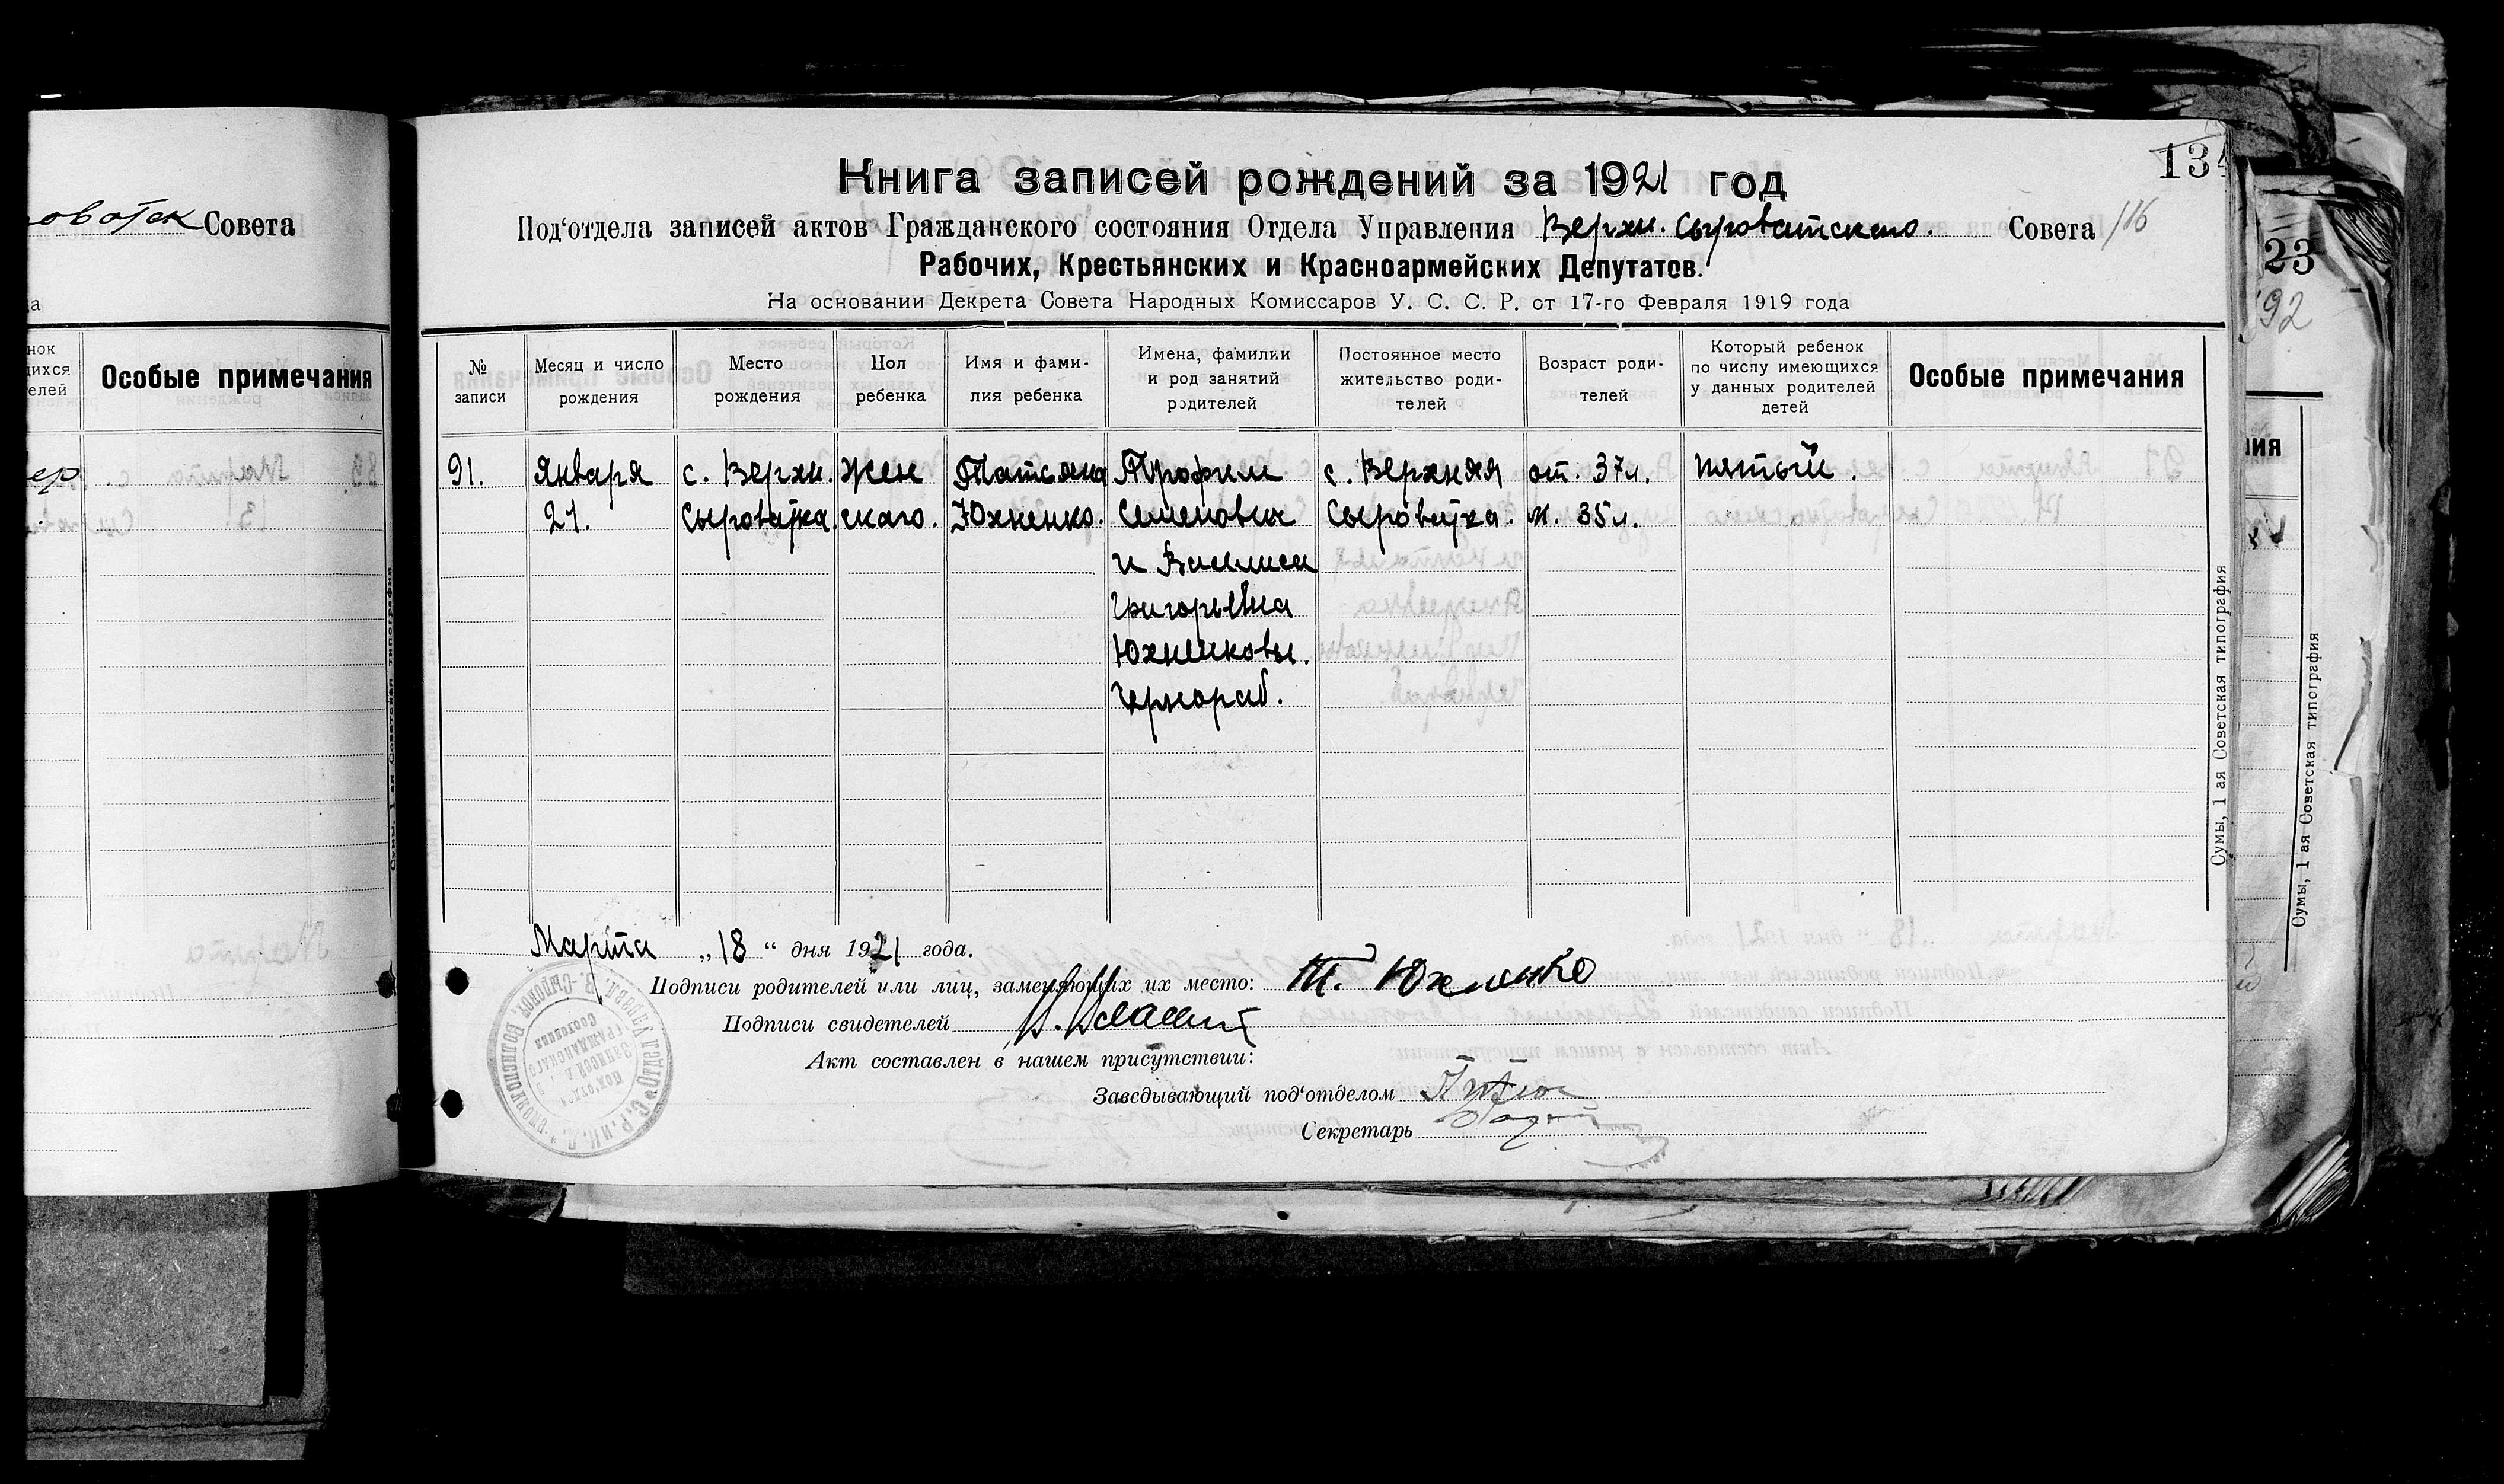 оватск Совета
Особые примечания
Книга записей рождений за 1921 год
134
Под'отдела записей актов Гражданского состояния Отдела Управления Верхн. Сыроватского. Совета 116
Рабочих, Крестьянских и Красноармейских Депутатов.
На основании Декрета Совета Народных Комиссаров У. С. С. Р. от 17-го Февраля 1919 года
№ записи
Месяц и число рождения
Место рождения
Пол ребенка
Имя и фамилия ребенка
Имена, фамилии и род занятий родителей
Постоянное место жительство родителей
Возраст родителей
Который ребенок по числу имеющихся у данных родителей детей
Особые примечания
91. Января с. Верхн. Жен Татьяна Трофим с. Верхняя от. 37л. пятый.
21. Сыроватка скаго. Юхненко. Семенович Сыроватка. м. 35л.
и Василиса
Григорьевна
Юхненковы.
Чернораб.
Марта „18“ дня 1921 года.
Подписи родителей или лиц, заменяющих их место: Т. Юхненко
Подписи свидетелей
Акт составлен в нашем присутствии:
Заведывающий под'отделом
Секретарь
Сумы, 1 ая Советская типография
23
192
Сумы, 1 ая Советская типография